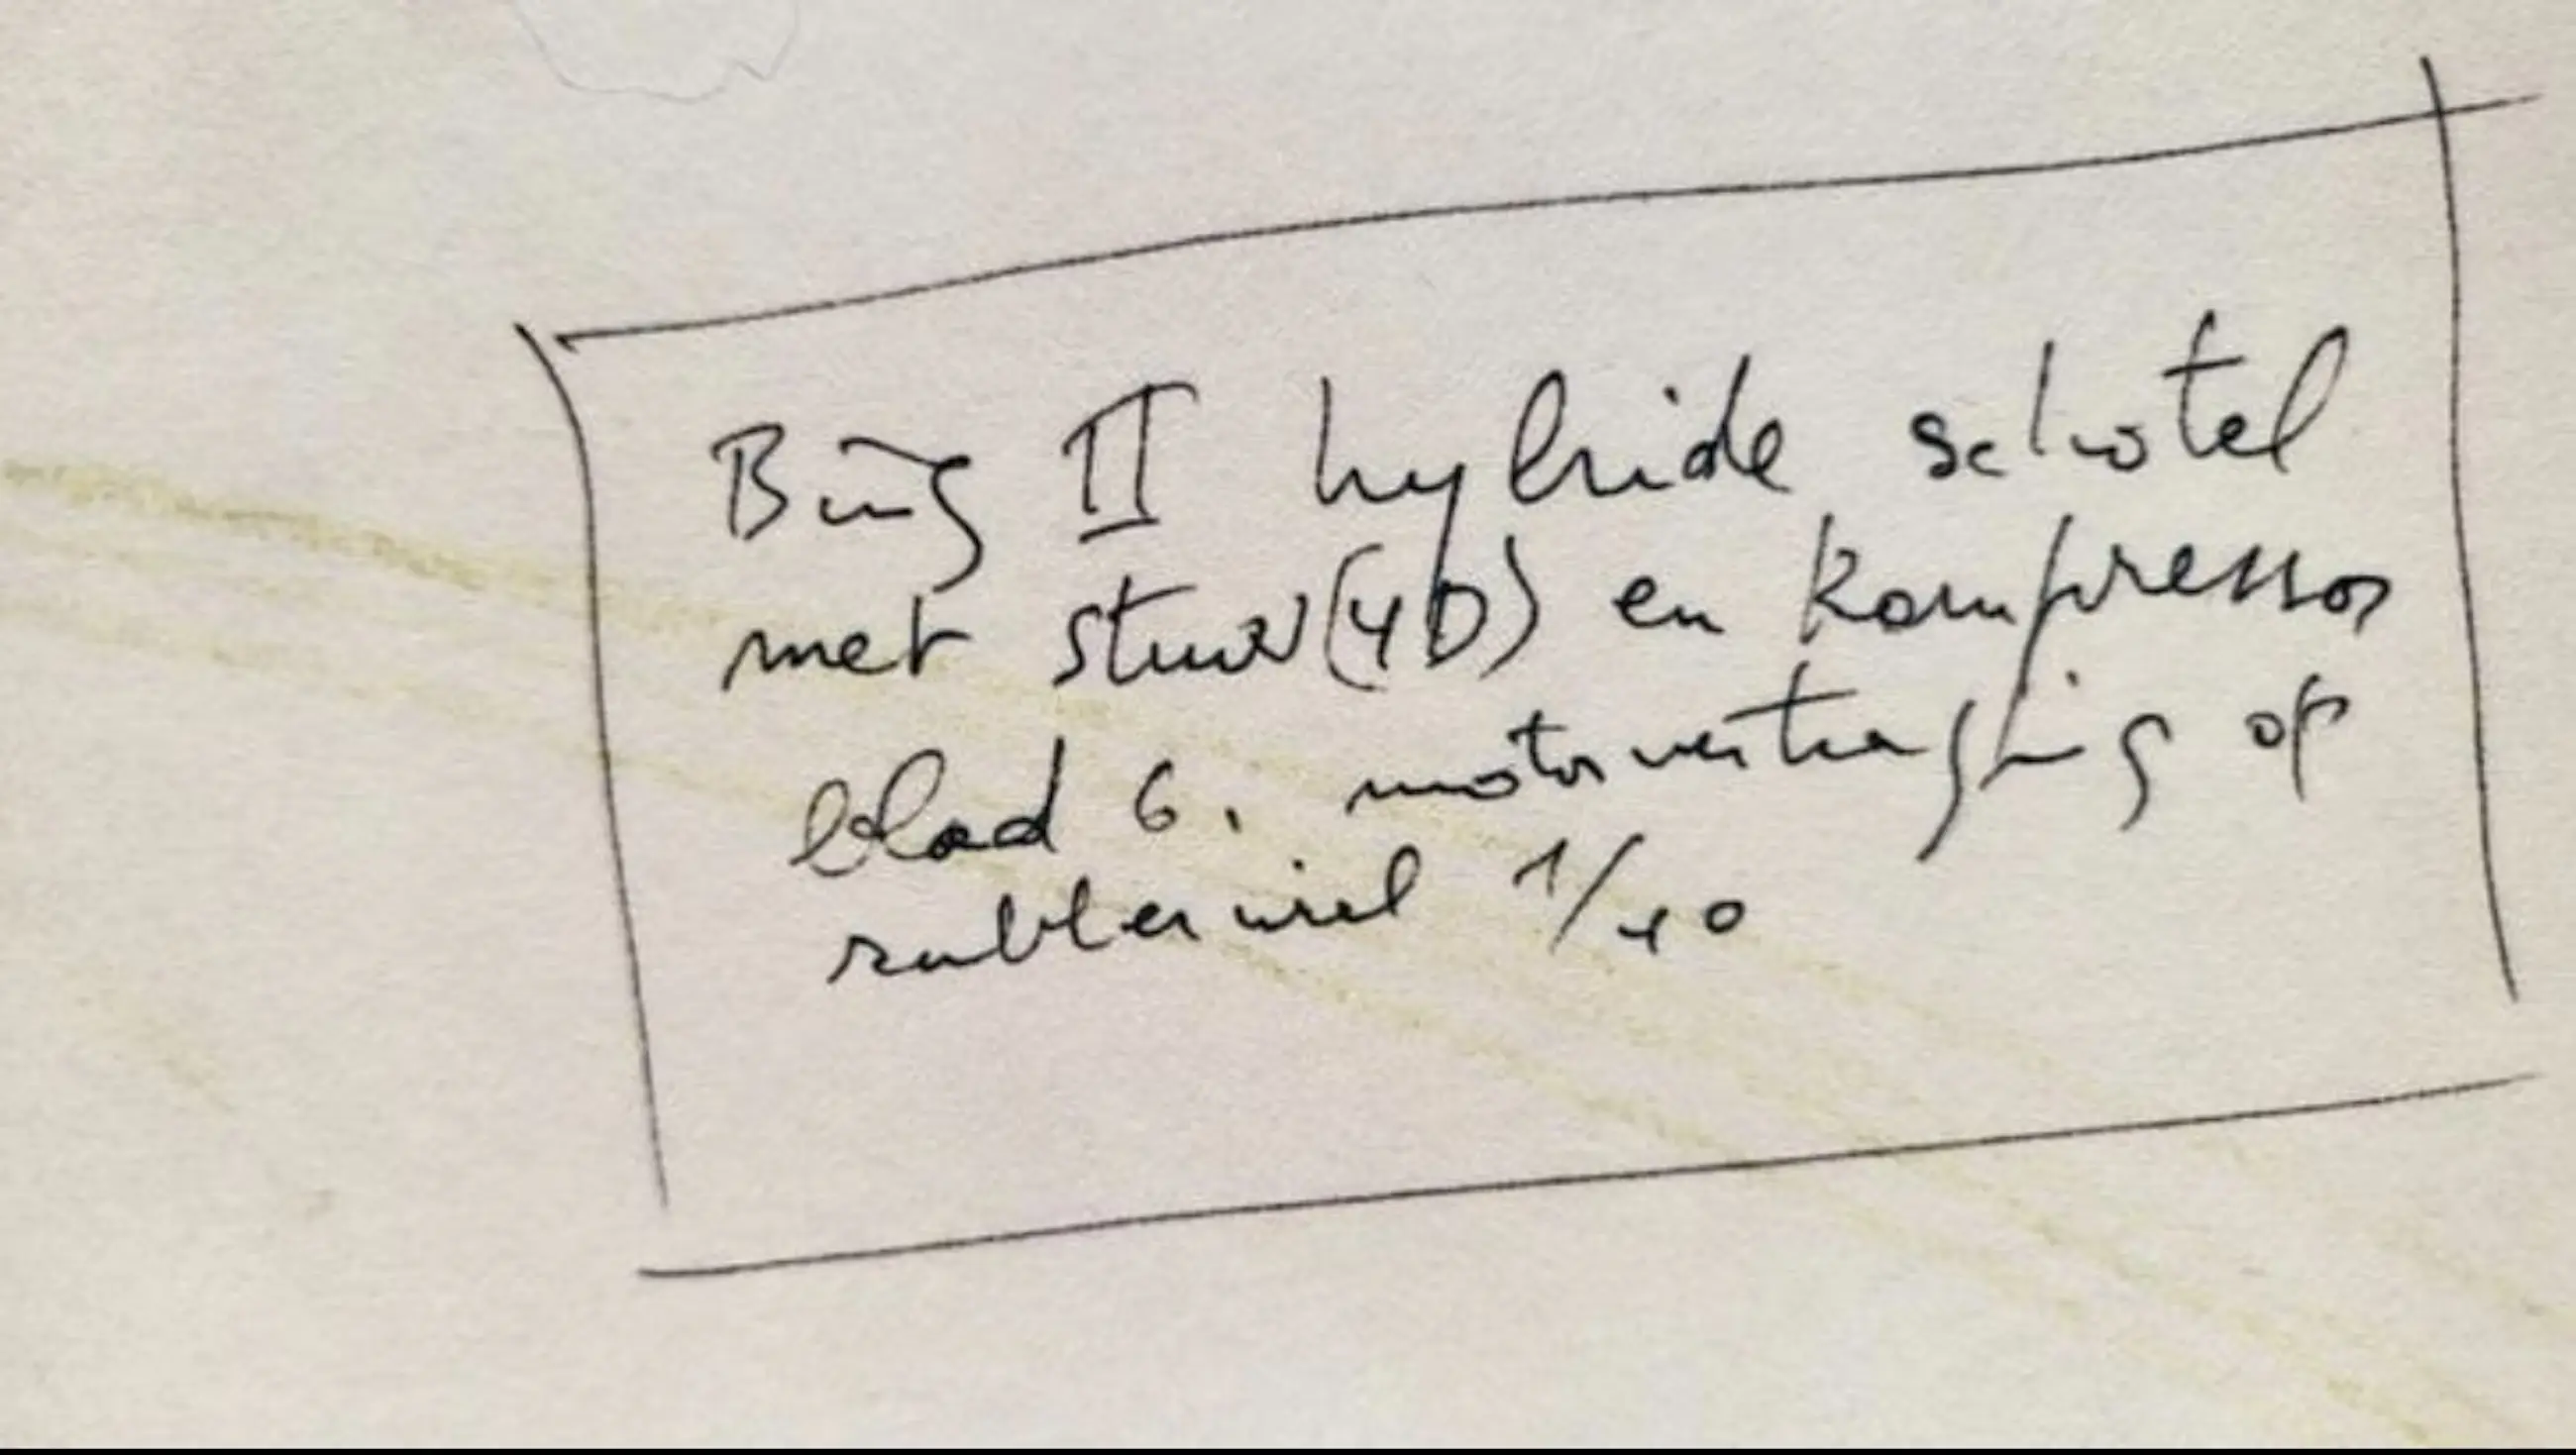 Bing II hybride schotel
met stuur (4D) en kompressor
blad 6. motorvertraging op
rubberwiel 1/40